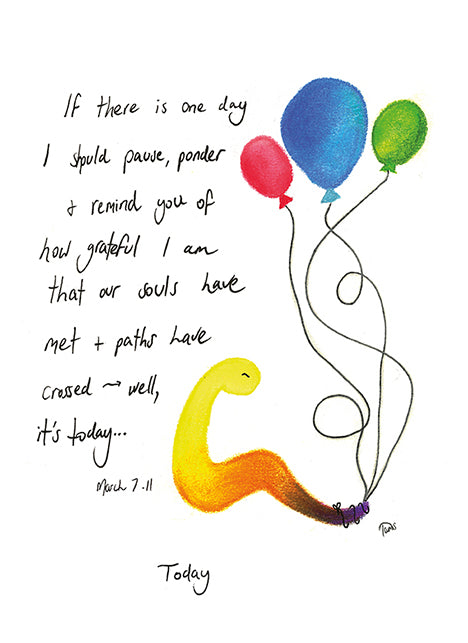 If there is one day
I should pause, ponder
+ remind you of
how grateful I am
that our souls have
met + paths have
crossed → well,
it's today...
March 7.11
Today